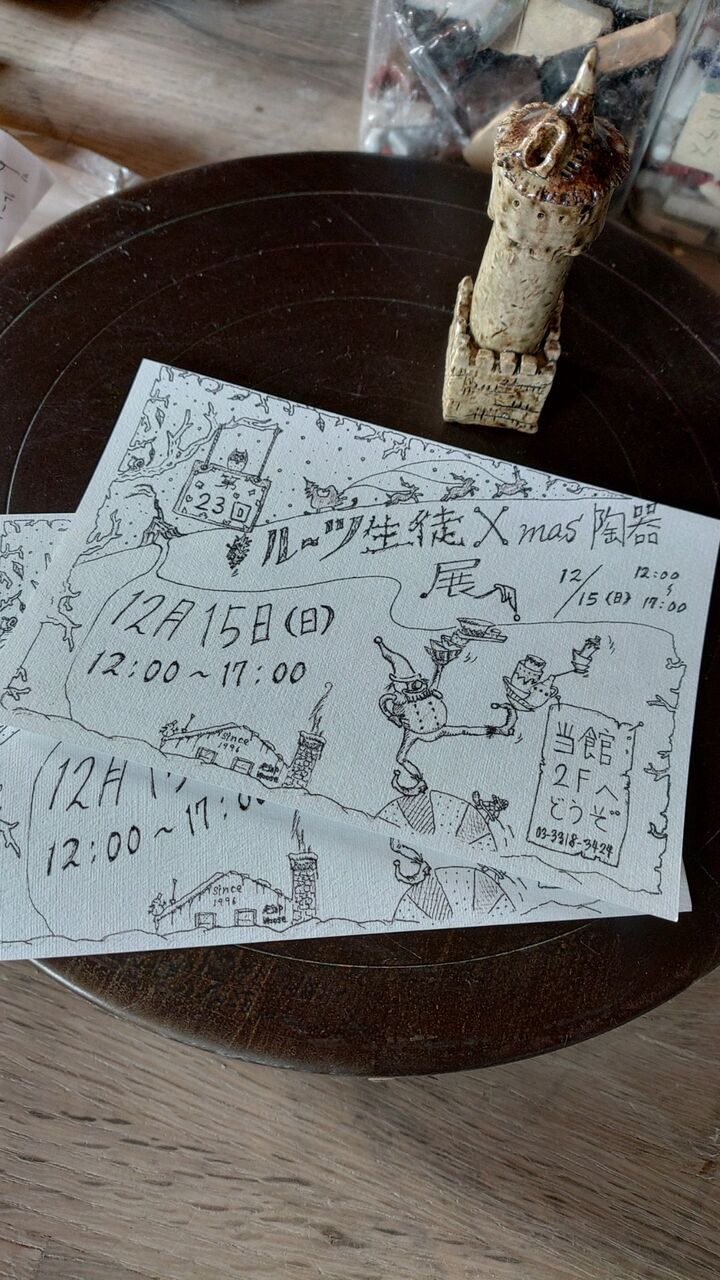 第
23回
ルーツ生徒Xmas陶器
展
12/15(日) 12:00〜17:00
12月15日(日)
12:00～17:00
since
1996
ÆSOP
House
当館
2Fへ
どうぞ
03-3318-3424
12月1
12:00～17:00
since
1996
ÆSOP
House